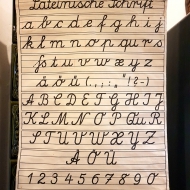 Lateinische Schrift
a b c d e f g h i j
k l m n o p q u r s
ſ s t u v w x y z
ä ö ü ( . , ; : „ " ! ? - )
A B C D E F G H I J
K L M N O P Q u R
S T U V W X Y Z
Ä Ö Ü
1 2 3 4 5 6 7 8 9 0